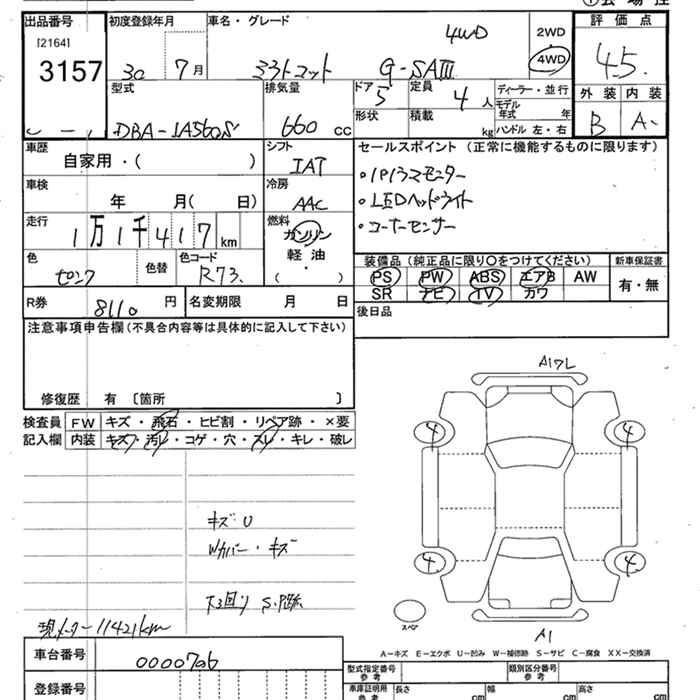 出品番号
[2164]
3157
初度登録年月
30 7月
車名・グレード
4WD
ミラトコット G-SAⅢ
2WD
4WD
評価点
4.5
外装 内装
B A-
型式
DBA-LA560S
排気量
660 cc
ドア
5
定員
4 人
形状
積載
kg
ディーラー・並行
モデル
年式 年
ハンドル 左・右
車歴
自家用・( )
シフト
IAT
車検
年 月( 日)
冷房
AAC
走行
1万1千417km
燃料
ガソリン
軽油
( ・ )
色
ピンク
色替
色コード
R73
R券
8110 円
名変期限 月 日
セールスポイント (正常に機能するものに限ります)
・LEDヘッドライト
・コーナーセンサー
装備品 (純正品に限り〇をつけてください)
PS PW ABS エアB AW
SR ナビ TV カワ
新車保証書
有・無
後日品
注意事項申告欄(不具合内容等は具体的に記入して下さい)
修復歴 有 〔箇所 〕
検査員
記入欄
FW キズ・飛石・ヒビ割・リペア跡・×要
内装 キズ・汚レ・コゲ・穴・スレ・キレ・破レ
キズ U
Wカバー・キズ
下廻り S.P跡
現メーター11421km
A17L
4 4
4 4
スペア
A1
A-キズ E-エクボ U-凹み W-補修跡 S-サビ C-腐食 XX-交換済
車台番号
0000706
登録番号
型式指定番号
参考
類別区分番号
参考
車庫証明用
参考
長さ cm
幅 cm
高さ cm